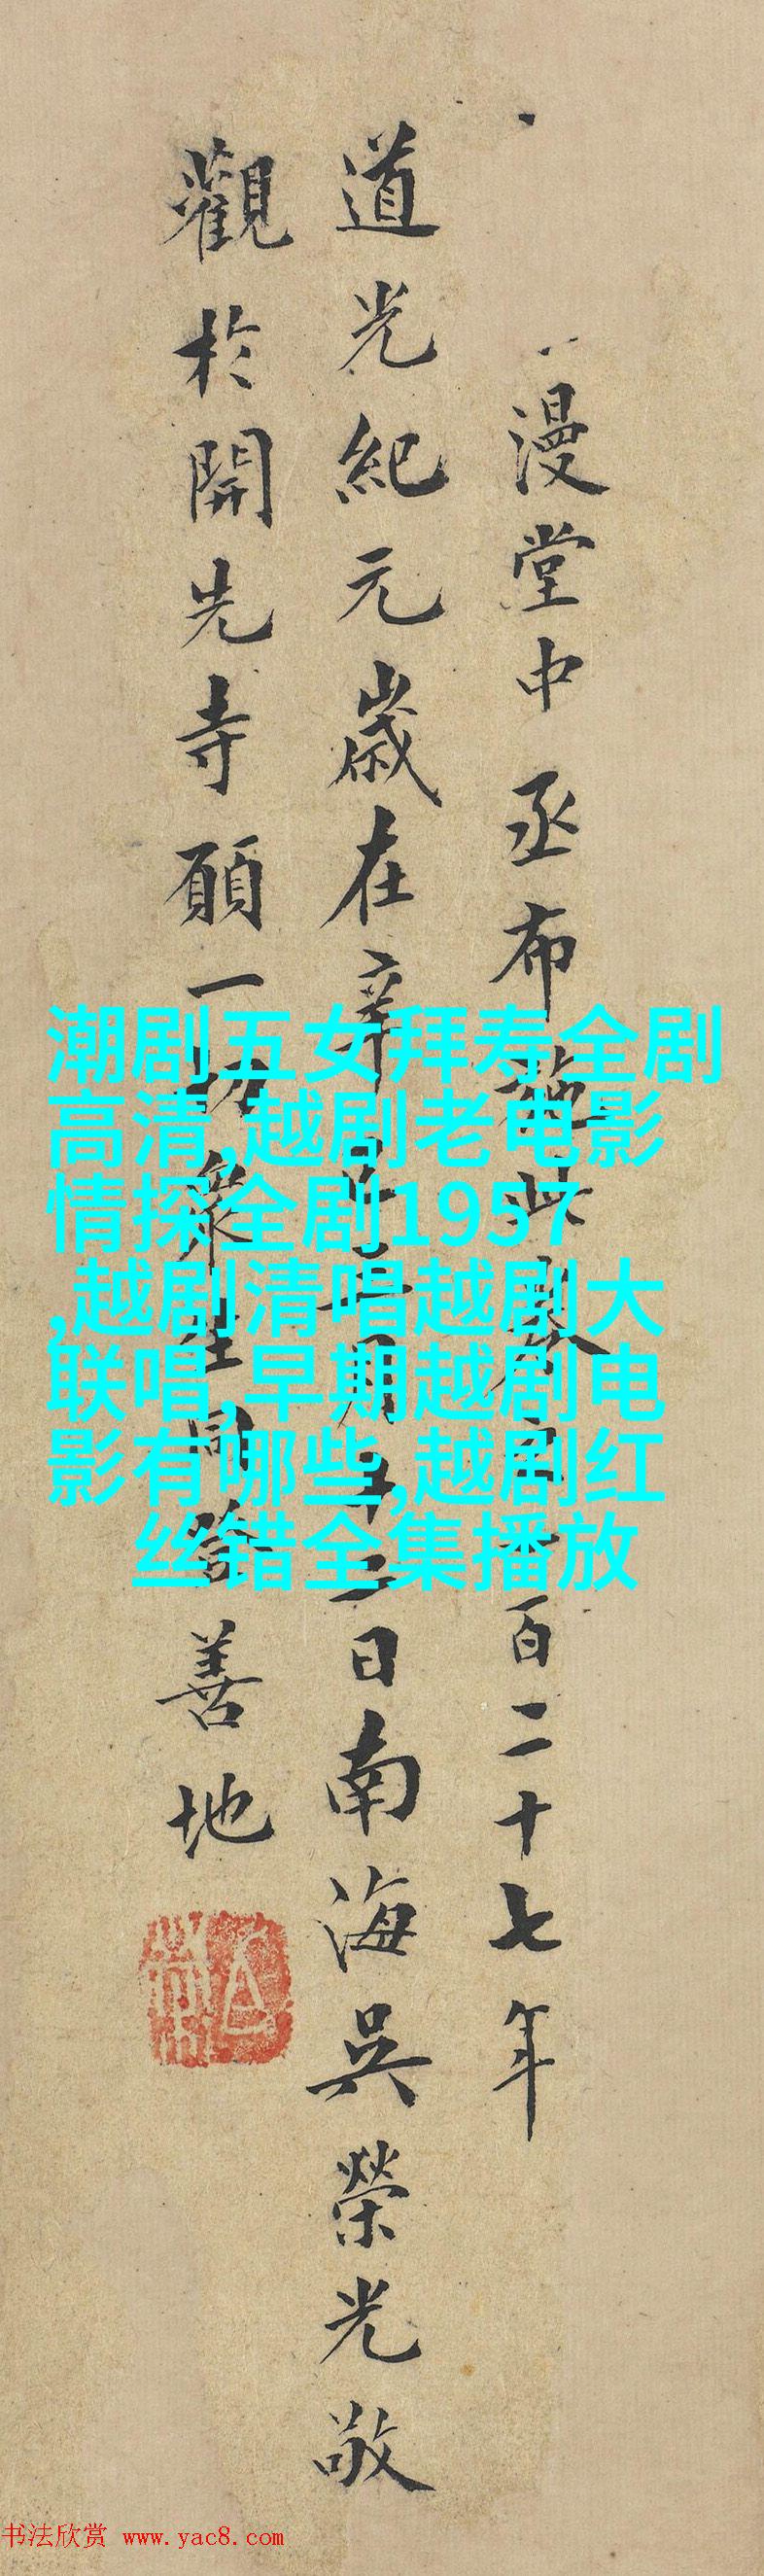 漫堂中丞布施此卷後一百二十七年
道光紀元歲在辛巳七月十二日南海吳榮光敬
觀於開先寺願一切衆生同登善地
潮剧五女拜寿全剧
高清,越剧老电影
情探全剧1957
,越剧清唱越剧大
联唱,早期越剧电
影有哪些,越剧红
丝错全集播放
书法欣赏 www.yac8.com